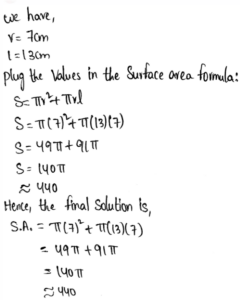 we have,
r = 7cm
l = 13cm
plug the values in the Surface area formula:
S = πr² + πrl
S = π(7)² + π(13)(7)
S = 49π + 91π
S = 140π
≈ 440
Hence, the final Solution is,
S.A. = π(7)² + π(13)(7)
= 49π + 91π
= 140π
≈ 440